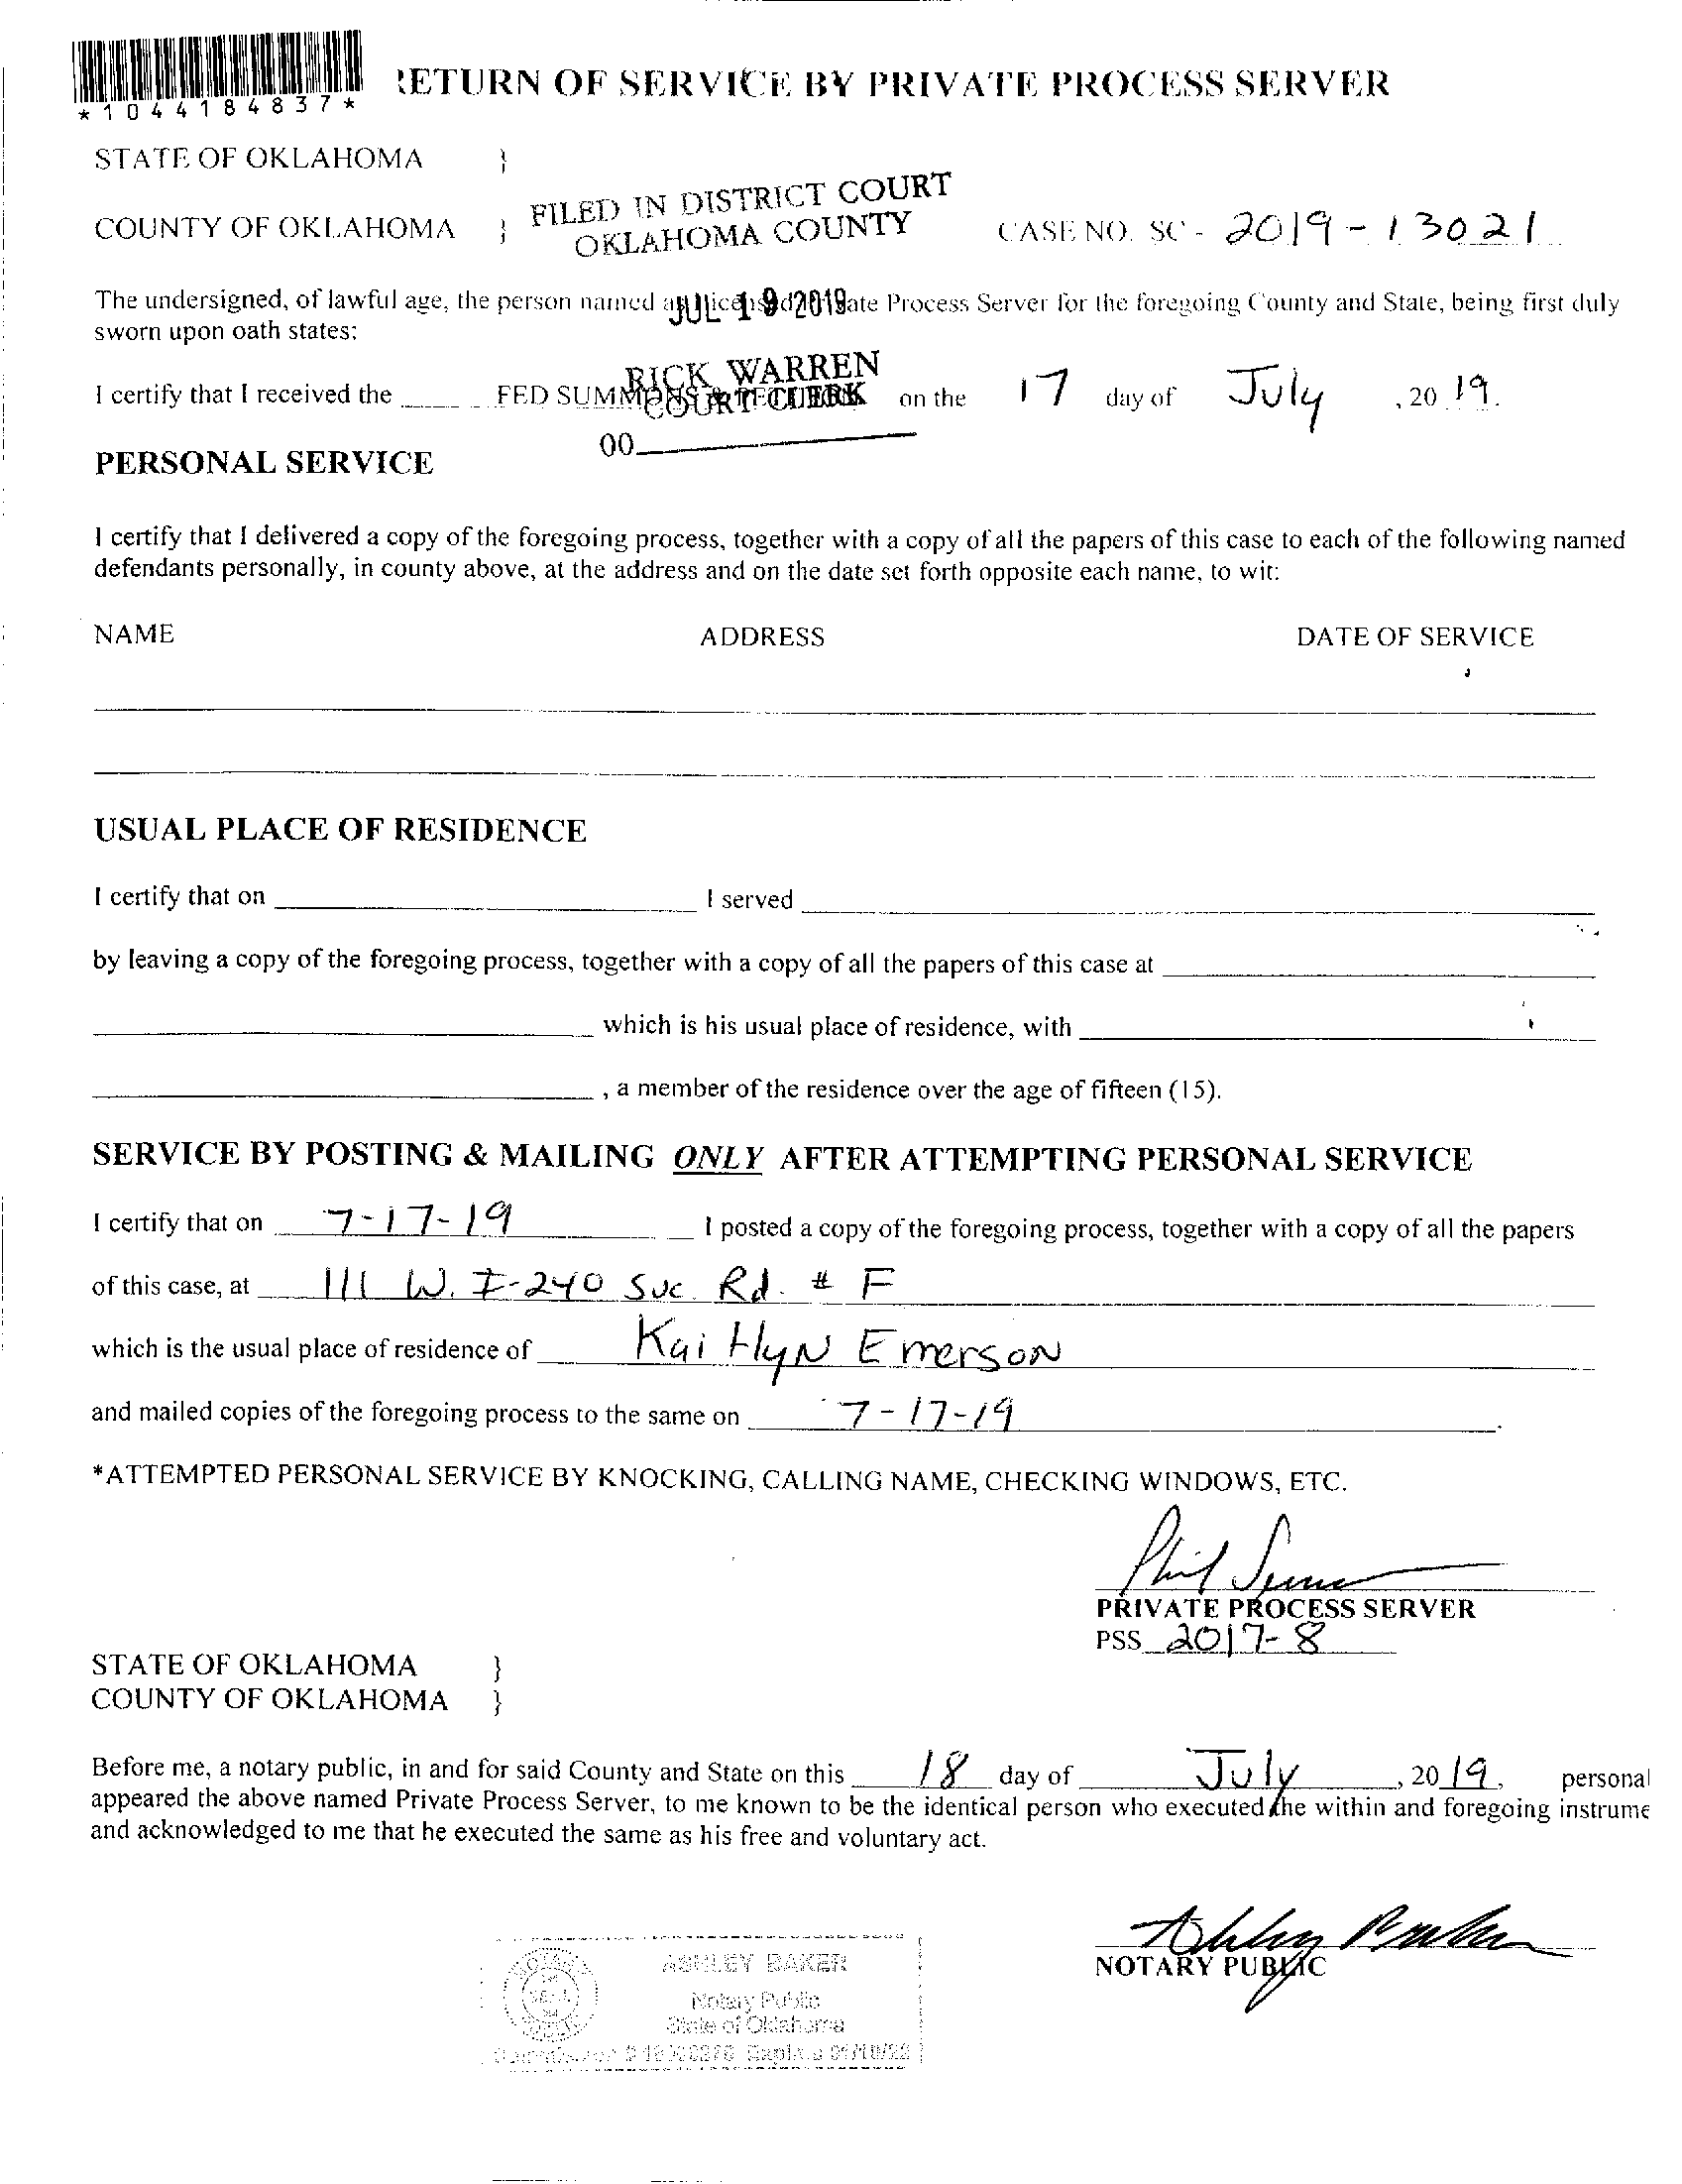 *1044184837*
RETURN OF SERVICE BY PRIVATE PROCESS SERVER
STATE OF OKLAHOMA }
FILED IN DISTRICT COURT
OKLAHOMA COUNTY
COUNTY OF OKLAHOMA } CASE NO. SC - 2019-13021
The undersigned, of lawful age, the person named as licensed Private Process Server for the foregoing County and State, being first duly
JUL 19 2019
sworn upon oath states:
RICK WARREN
COURT CLERK
I certify that I received the FED SUMMONS & on the 17 day of July , 20 19.
00
PERSONAL SERVICE
I certify that I delivered a copy of the foregoing process, together with a copy of all the papers of this case to each of the following named
defendants personally, in county above, at the address and on the date set forth opposite each name, to wit:
NAME ADDRESS DATE OF SERVICE
USUAL PLACE OF RESIDENCE
I certify that on I served
by leaving a copy of the foregoing process, together with a copy of all the papers of this case at
which is his usual place of residence, with
, a member of the residence over the age of fifteen (15).
SERVICE BY POSTING & MAILING ONLY AFTER ATTEMPTING PERSONAL SERVICE
I certify that on 7-17-19 I posted a copy of the foregoing process, together with a copy of all the papers
of this case, at 111 W. I-240 Svc. Rd. # F
which is the usual place of residence of Kaitlyn Emerson
and mailed copies of the foregoing process to the same on 7-17-19.
*ATTEMPTED PERSONAL SERVICE BY KNOCKING, CALLING NAME, CHECKING WINDOWS, ETC.
Phil
PRIVATE PROCESS SERVER
PSS 2017-8
STATE OF OKLAHOMA }
COUNTY OF OKLAHOMA }
Before me, a notary public, in and for said County and State on this 18 day of July , 20 19, personal
appeared the above named Private Process Server, to me known to be the identical person who executed the within and foregoing instrume
and acknowledged to me that he executed the same as his free and voluntary act.
Ashley Baker
NOTARY PUBLIC
ASHLEY BAKER
Notary Public
State of Oklahoma